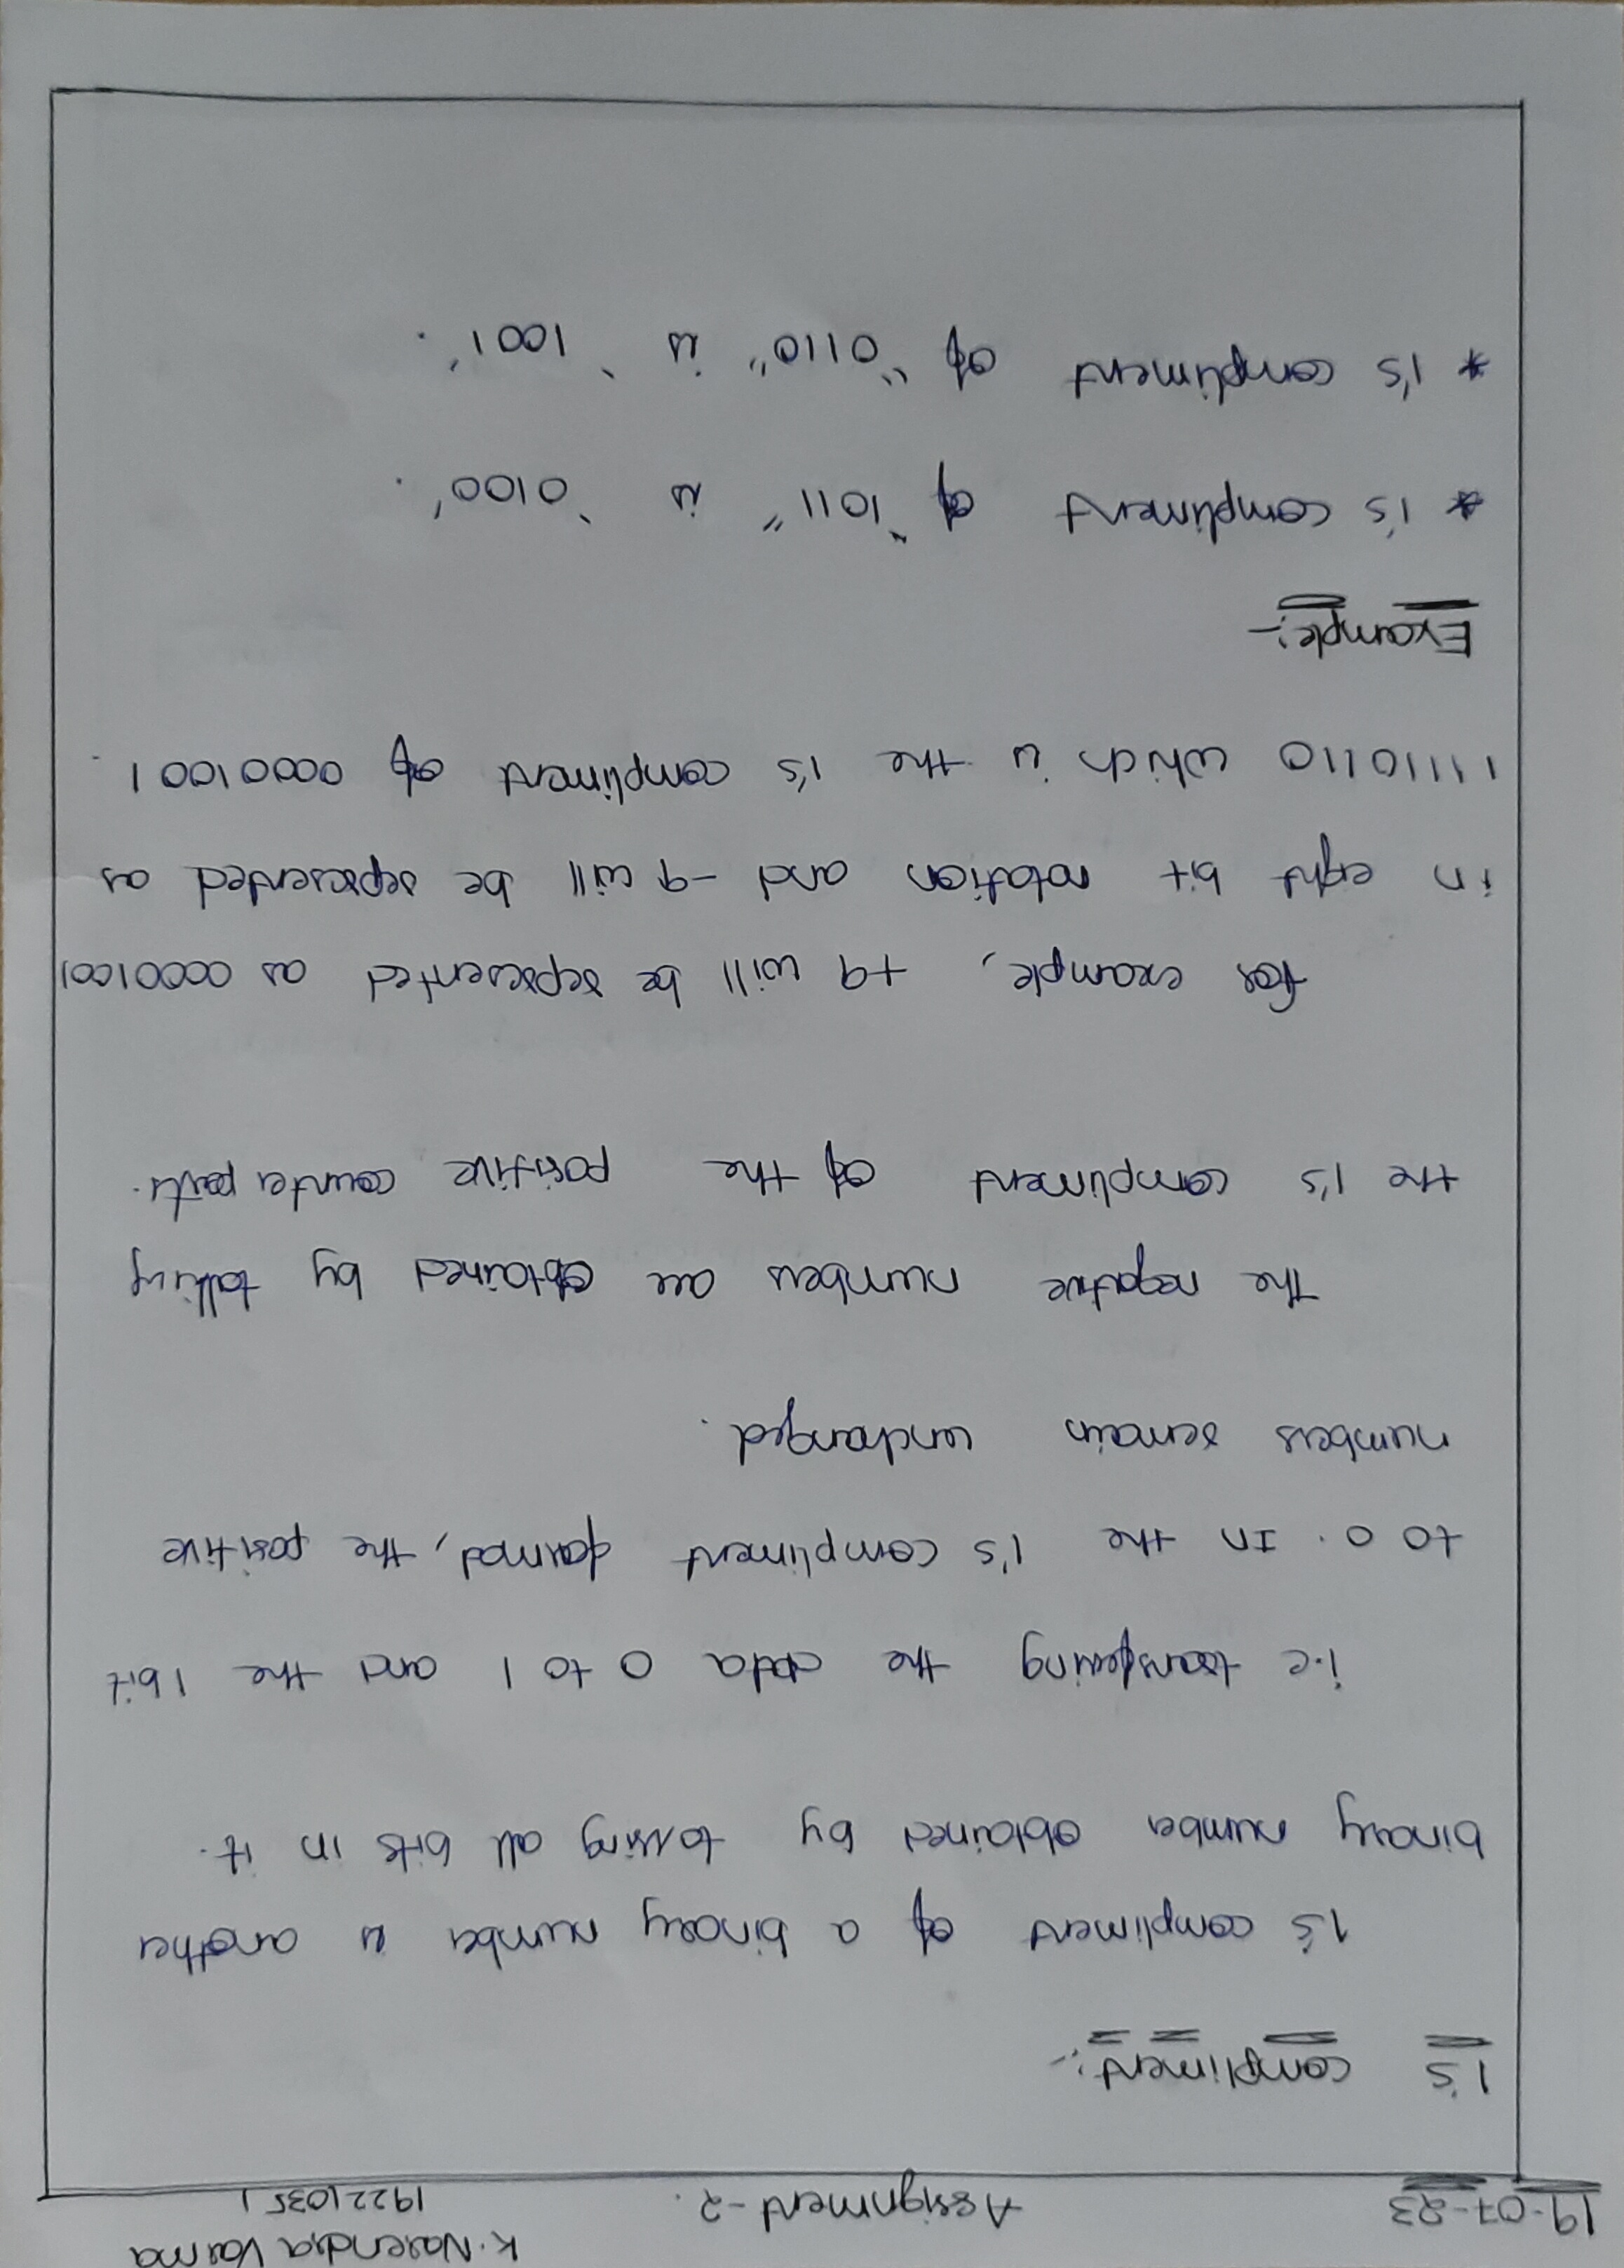 K. Narendra Varma
19-07-23 Assignment-2. 192210351
1's compliment:-
1's compliment of a binary number is another
binary number obtained by tossing all bits in it.
i.e transfering the data 0 to 1 and the 1 bit
to 0. In the 1's compliment format, the positive
numbers remain unchanged.
The negative numbers are obtained by talking
the 1's compliment of the positive counter parts.
for example, +9 will be represented as 00001001
in eight bit notation and -9 will be represented as
11110110 which is the 1's compliment of 00001001.
Example:-
* 1's compliment of "1011" is '0100'.
* 1's compliment of "0110" is '1001'.